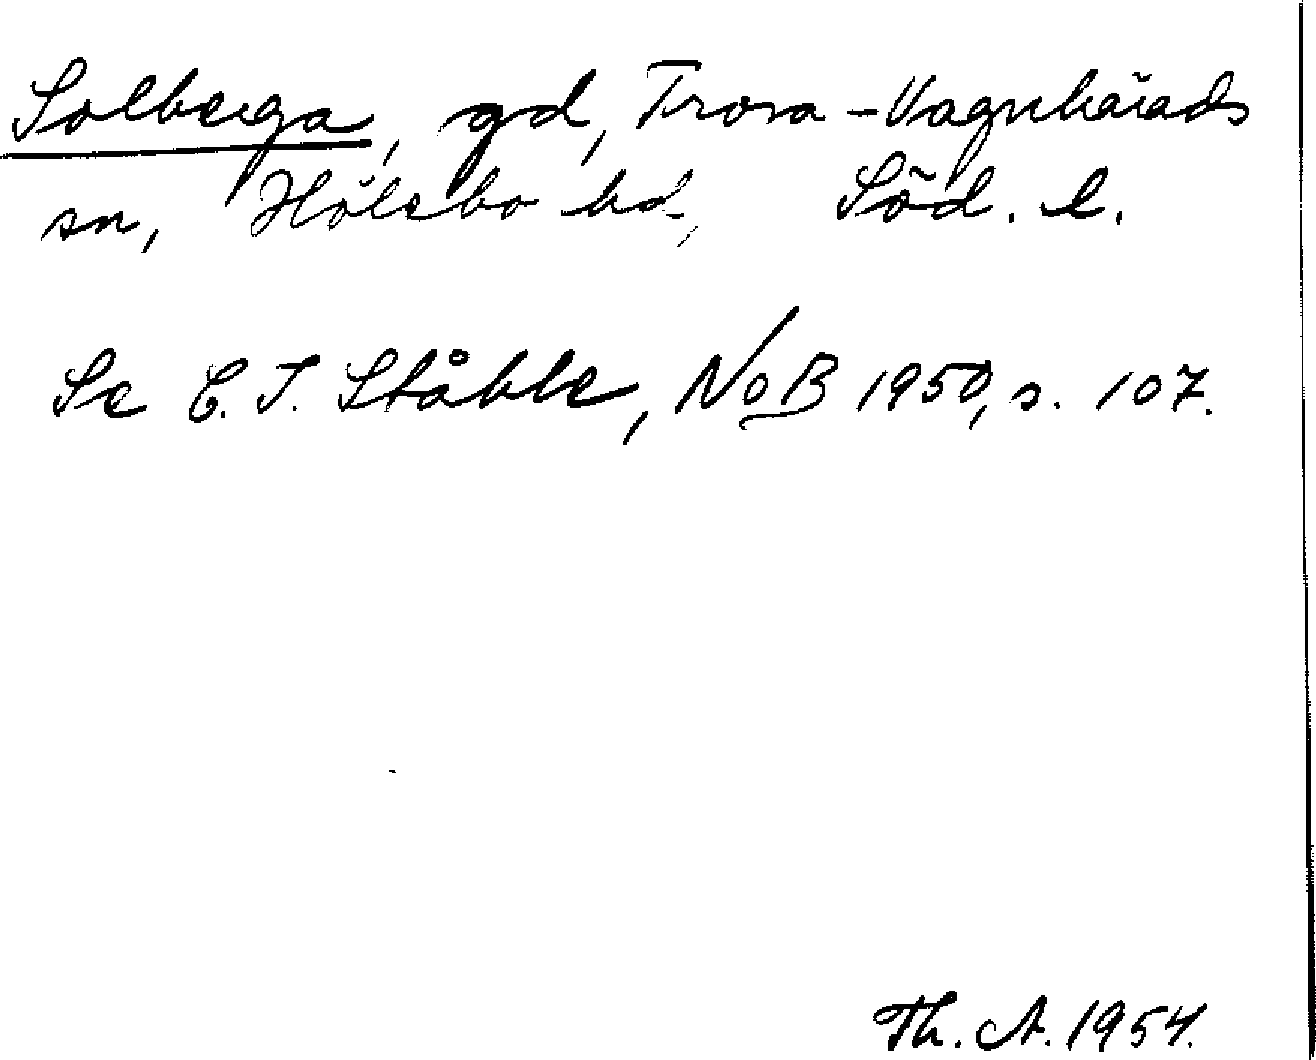 Solberga, gd, Trosa-Vagnhärads
sn, Hölebo hd, Söd. l.
Se C. I. Ståhle, NoB 1950, s. 107.
Th. A. 1954.